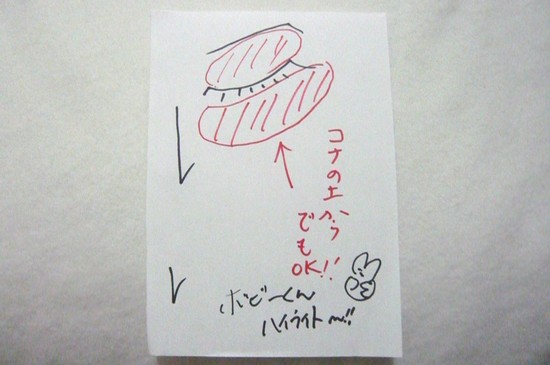 コナの上から
でも
OK!!
ホビーくん
ハイライトm!!